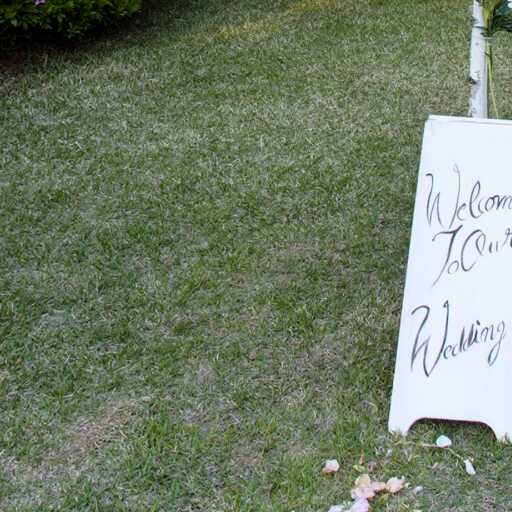 Welcom
To Our
Wedding